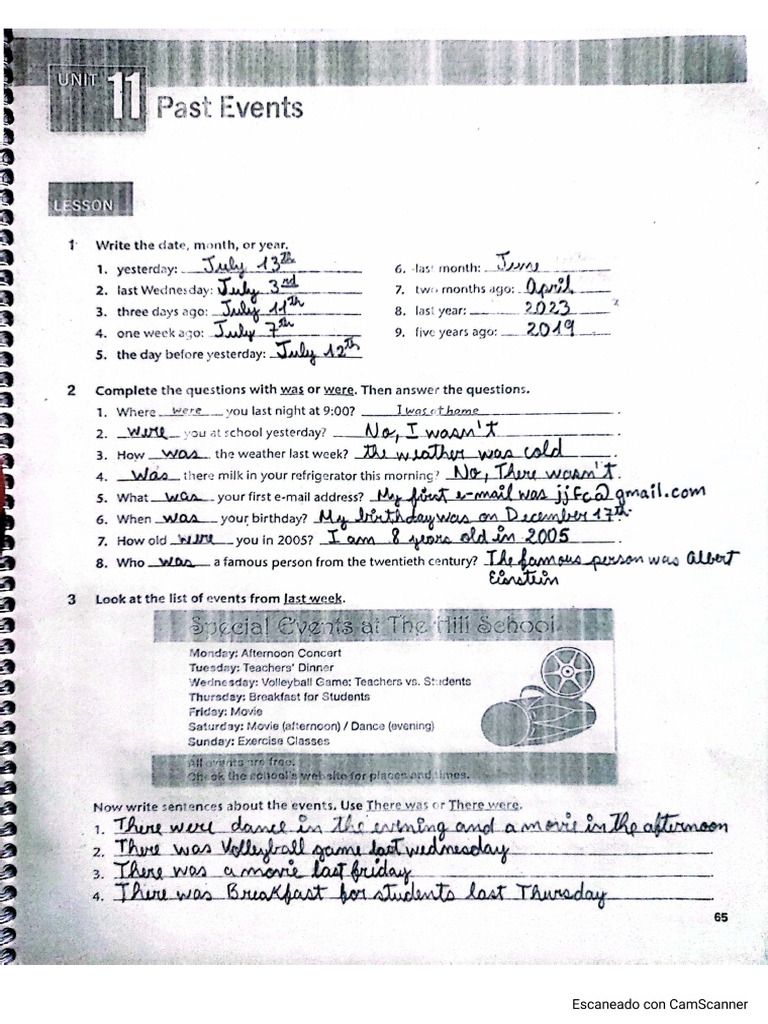 UNIT 11 Past Events
LESSON
1 Write the date, month, or year.
1. yesterday: July 13th
2. last Wednesday: July 3rd
3. three days ago: July 11th
4. one week ago: July 7th
5. the day before yesterday: July 12th
6. last month: June
7. two months ago: April
8. last year: 2023
9. five years ago: 2019
2 Complete the questions with was or were. Then answer the questions.
1. Where were you last night at 9:00? I was at home.
2. were you at school yesterday? No, I wasn't.
3. How was the weather last week? the weather was cold.
4. Was there milk in your refrigerator this morning? No, There wasn't.
5. What was your first e-mail address? My first e-mail was jjfc@gmail.com
6. When was your birthday? My birthday was on December 17th.
7. How old were you in 2005? I am 8 years old in 2005.
8. Who was a famous person from the twentieth century? The famous person was Albert
Einstein
3 Look at the list of events from last week.
Special Events at The Hill School
Monday: Afternoon Concert
Tuesday: Teachers' Dinner
Wednesday: Volleyball Game: Teachers vs. Students
Thursday: Breakfast for Students
Friday: Movie
Saturday: Movie (afternoon) / Dance (evening)
Sunday: Exercise Classes
All events are free.
Check the school's website for places and times.
Now write sentences about the events. Use There was or There were.
1. There were dance in the evening and a movie in the afternoon
2. There was Volleyball game last wednesday
3. There was a movie last friday
4. There was Breakfast for students last Thursday
65
Escaneado con CamScanner